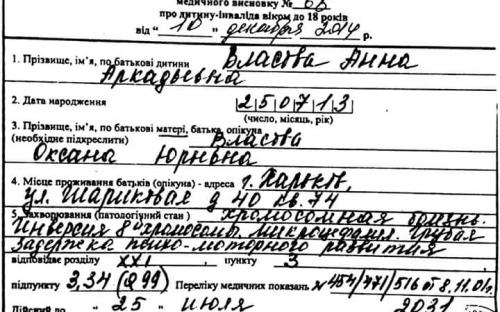 медичного висновку № 68
про дитину-інваліда віком до 18 років
від " 10 " декабря 2014 р.
1. Прізвище, ім'я, по батькові дитини Власова Анна
Аркадьевна
2. Дата народження 2 5 0 7 1 3
(число, місяць, рік)
3. Прізвище, ім'я, по батькові матері, батька, опікуна
(необхідне підкреслити) Власова
Оксана Юрьевна
4. Місце проживання батьків (опікуна) - адреса г. Харьков,
ул. Шариковая д 40 кв. 74
5. Захворювання (патологічний стан) Хромосомная болезнь.
Инверсия 8й хромосомы. Грубая
задержка психо-моторного развития
відповідає розділу XXI , пункту 3
підпункту 3,34 (Q 99) Переліку медичних показань № 454/471/516 от 8.11.01г.
Дійсний до " 25 " июля 2031